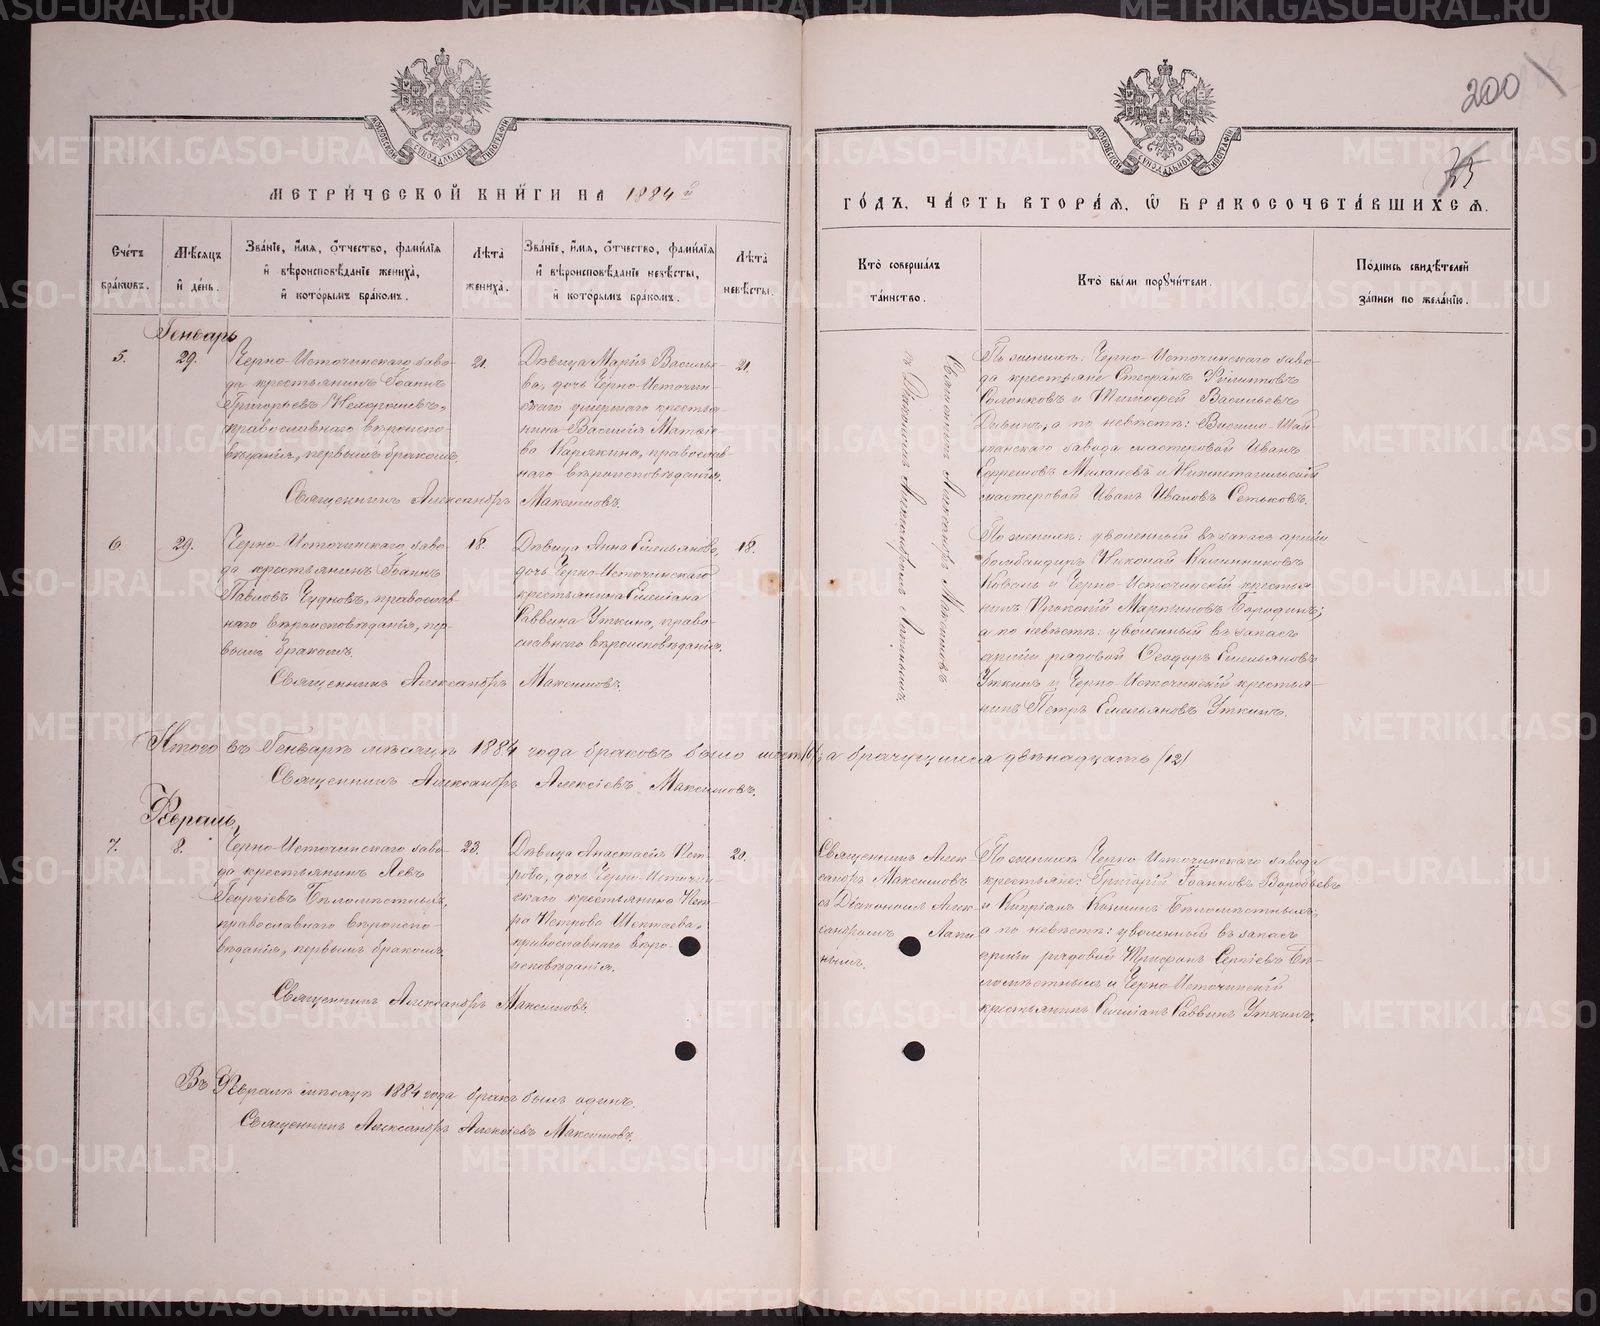 200
35
МЕТРИ́ЧЕСКОЙ КНИ́ГИ НА 1884 й
ГО́ДЪ, ЧА́СТЬ ВТОРА́Я, Ѡ БРАКОСОЧЕТА́ВШИХСЯ.
Сче́тъ бра́ковъ.
Мѣ́сяцъ и҆ де́нь.
Зва́нїе, и҆́мя, ѻ҆́тчество, фами́лїя
и҆ вѣроисповѣ́данїе жениха̀,
и҆ кото́рымъ бра́комъ.
Лѣ́та жениха̀.
Зва́нїе, и҆́мя, ѻ҆́тчество, фами́лїя
и҆ вѣроисповѣ́данїе невѣ́сты,
и҆ кото́рымъ бра́комъ.
Лѣ́та невѣ́сты.
Кто̀ соверша́лъ
та́инство.
Кто̀ бы́ли порꙋчи́тели.
По́дпись свидѣ́телей
за́писи по жела́нїю.
Генварь
5.
29.
Черно-Источинскаго заво-
да крестьянинъ Іоаннъ
Григорьевъ Нехорошевъ,
православнаго вѣроиспо-
вѣданія, первымъ бракомъ.
21.
Дѣвица Марія Василь-
ева, дочь Черно-Источин-
скаго умершаго крестья-
нина Василія Матѳіе-
ва Карякина, православ-
наго вѣроисповѣданія.
21.
Священникъ Александръ Максимовъ.
Священникъ Александръ Максимовъ
съ Діакономъ Александромъ Лапинымъ.
По женихѣ: Черно-Источинскаго заво-
да крестьяне Стефанъ Филипповъ
Солонковъ и Тимофей Васильевъ
а по невѣстѣ: Висимо-Шай-
танскаго завода мастеровой Иванъ
Ефремовъ и Нижнетагильскій
мастеровой Иванъ Ивановъ Сетьковъ.
6.
29.
Черно-Источинскаго заво-
да крестьянинъ Іоаннъ
Павловъ Чудновъ, православ-
наго вѣроисповѣданія, пер-
вымъ бракомъ.
18.
Дѣвица Анна Емельянова,
дочь Черно-Источинскаго
крестьянина Емеліана
Саввина Уткина, право-
славнаго вѣроисповѣданія.
18.
Священникъ Александръ Максимовъ.
По женихѣ: уволенный въ запасъ арміи
бомбандиръ Николай Калинниковъ
Коваль и Черно-Источинскій крестья-
нинъ Прокопій Мартиновъ Бородинъ;
а по невѣстѣ: уволенный въ запасъ
арміи рядовой Ѳеодоръ Емельяновъ
Уткинъ и Черно-Источинскій крестья-
нинъ Петръ Емельяновъ Уткинъ.
Итого въ Генварѣ мѣсяцѣ 1884 года браковъ было шесть (6), а брачущихся двѣнадцать (12)
Священникъ Александръ Алексіевъ Максимовъ.
Февраль
7.
8.
Черно-Источинскаго заво-
да крестьянинъ Левъ
Георгіевъ Бѣломѣстныхъ,
православнаго вѣроиспо-
вѣданія, первымъ бракомъ.
23.
Дѣвица Анастасія Пет-
рова, дочь Черно-Источин-
скаго крестьянина Пет-
ра Петрова
православнаго вѣро-
исповѣданія.
20.
Священникъ Алек-
сандръ Максимовъ
съ Діакономъ Алек-
сандромъ Лапи-
нымъ.
По женихѣ Черно-Источинскаго завода
крестьяне: Григорій Іоанновъ Воробьевъ
и Кипріанъ Козминъ Бѣломѣстныхъ;
а по невѣстѣ: уволенный въ запасъ
арміи рядовой Трифонъ Сергіевъ Бѣ-
ломѣстныхъ и Черно-Источинскій
крестьянинъ Емеліанъ Саввинъ Уткинъ.
Священникъ Александръ Максимовъ.
Въ Февралѣ мѣсяцѣ 1884 года бракъ былъ одинъ.
Священникъ Александръ Алексіевъ Максимовъ.
METRIKI.GASO-URAL.RU